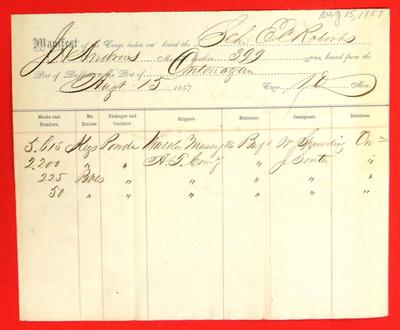 Aug 15, 1857
Manifest of the Cargo taken on board the Sch. E C Roberts
J. Andrews Master, Burthen 399 Tons, bound from the
Port of Buffalo to the Port of Ontonagon
Augt 15 1857 Cargo Men
Marks and Numbers. No. Entries. Packages and Contents. Shippers. Residence. Consignees. Residence.
5.615 Kegs Powder Buf o W. Spaulding On
2.200 " " " J. "
225 Boxs " " " " "
50 " " " " "